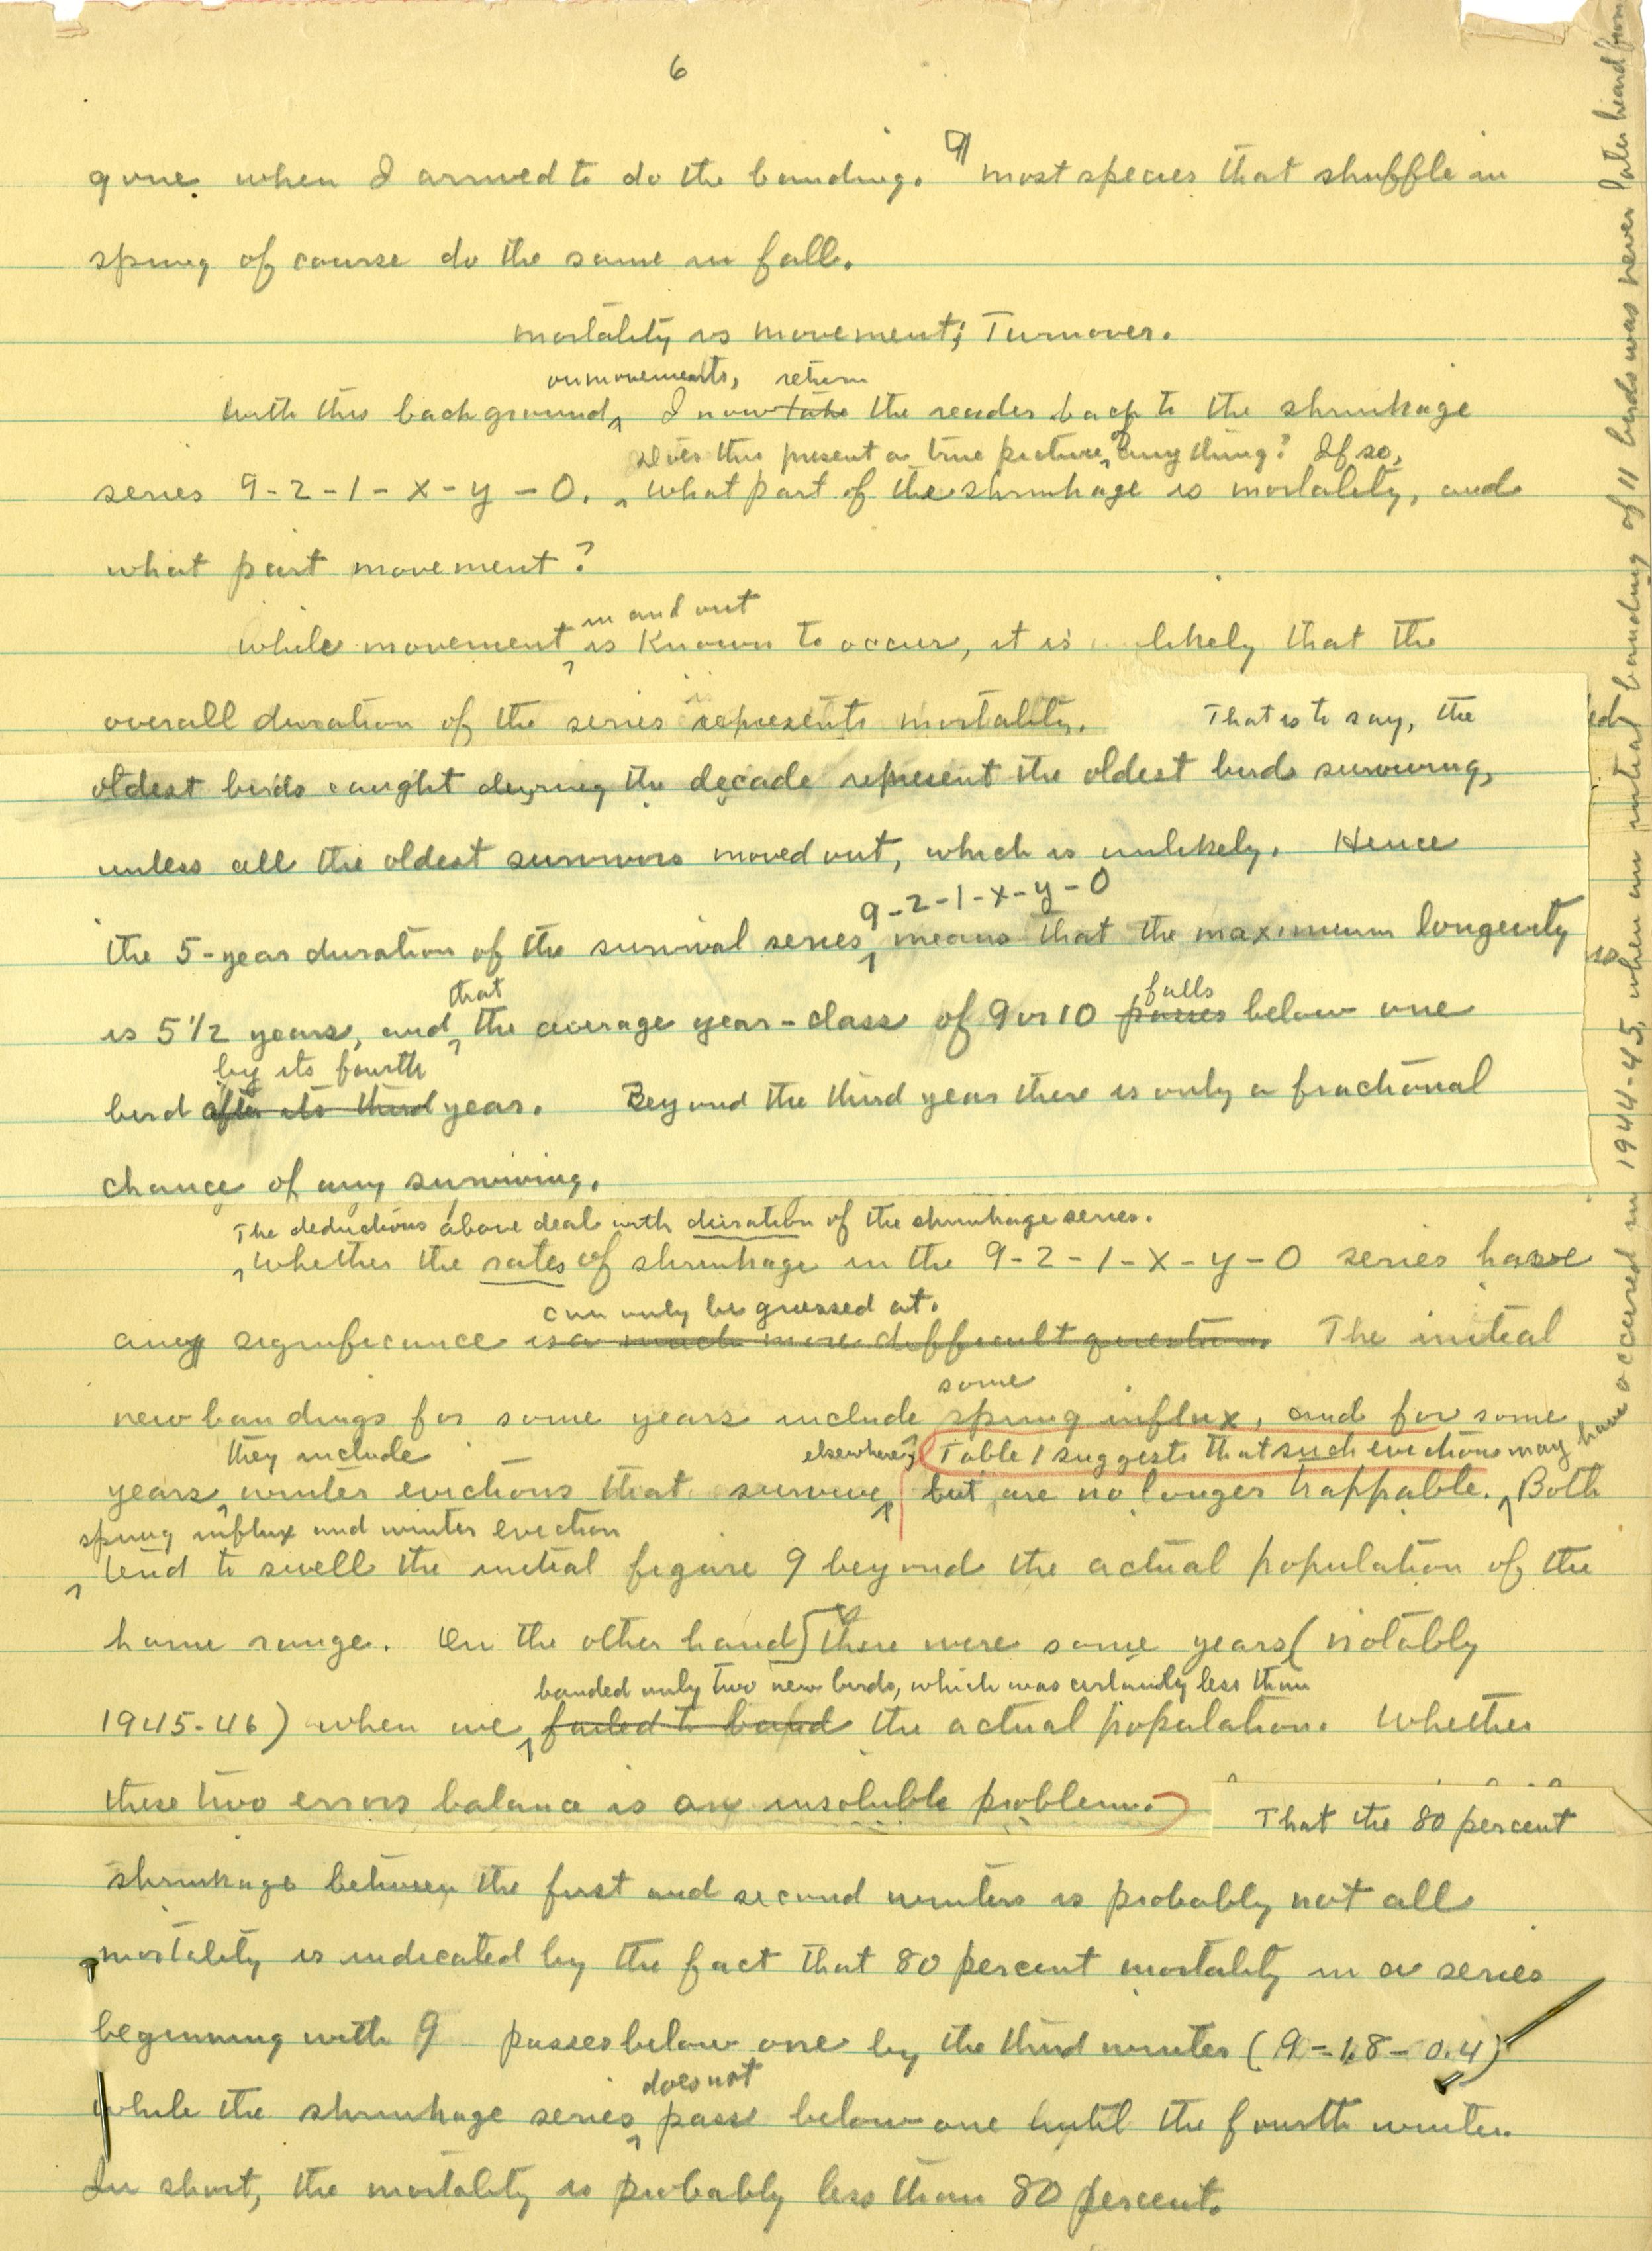 6
gone when I arrived to do the banding. ¶ most species that shuffle in
spring of course do the same in fall.
mortality vs movement; Turnover.
on movements, return
With this background, I now take the reader back to the shrinkage
Does this present a true picture of anything? If so,
series 9-2-1-x-y-0. what part of the shrinkage is mortality, and
what part movement?
in and out
While movement is known to occur, it is likely that the
overall duration of the series represents mortality. That is to say, the
oldest birds caught during the decade represent the oldest birds surviving,
unless all the oldest survivors moved out, which is unlikely. Hence
9-2-1-x-y-0
the 5-year duration of the survival series means that the maximum longevity
that falls
is 5 1/2 years, and the average year-class of 9 or 10 passes below one
by its fourth
bird after its third year. Beyond the third year there is only a fractional
chance of any surviving.
The deductions above deal with duration of the shrinkage series.
Whether the rates of shrinkage in the 9-2-1-x-y-0 series have
can only be guessed at.
any significance is a much more difficult question. The initial
some
new bandings for some years include spring influx, and for some
they include elsewhere, Table 1 suggests that such evictions may have occurred in 1944-45, when an initial banding of 11 birds was never later heard from
years winter evictions that survive but are no longer trappable. Both
spring influx and winter eviction
tend to swell the initial figure 9 beyond the actual population of the
home range. On the other hand there were some years (notably
banded only two new birds, which was certainly less than
1945-46) when we failed to band the actual population. Whether
these two errors balance is an insoluble problem. That the 80 percent
shrinkage between the first and second winters is probably not all
mortality is indicated by the fact that 80 percent mortality in a series
beginning with 9 passes below one by the third winter (9-1.8-0.4)
does not
while the shrinkage series pass below one until the fourth winter.
In short, the mortality is probably less than 80 percent.